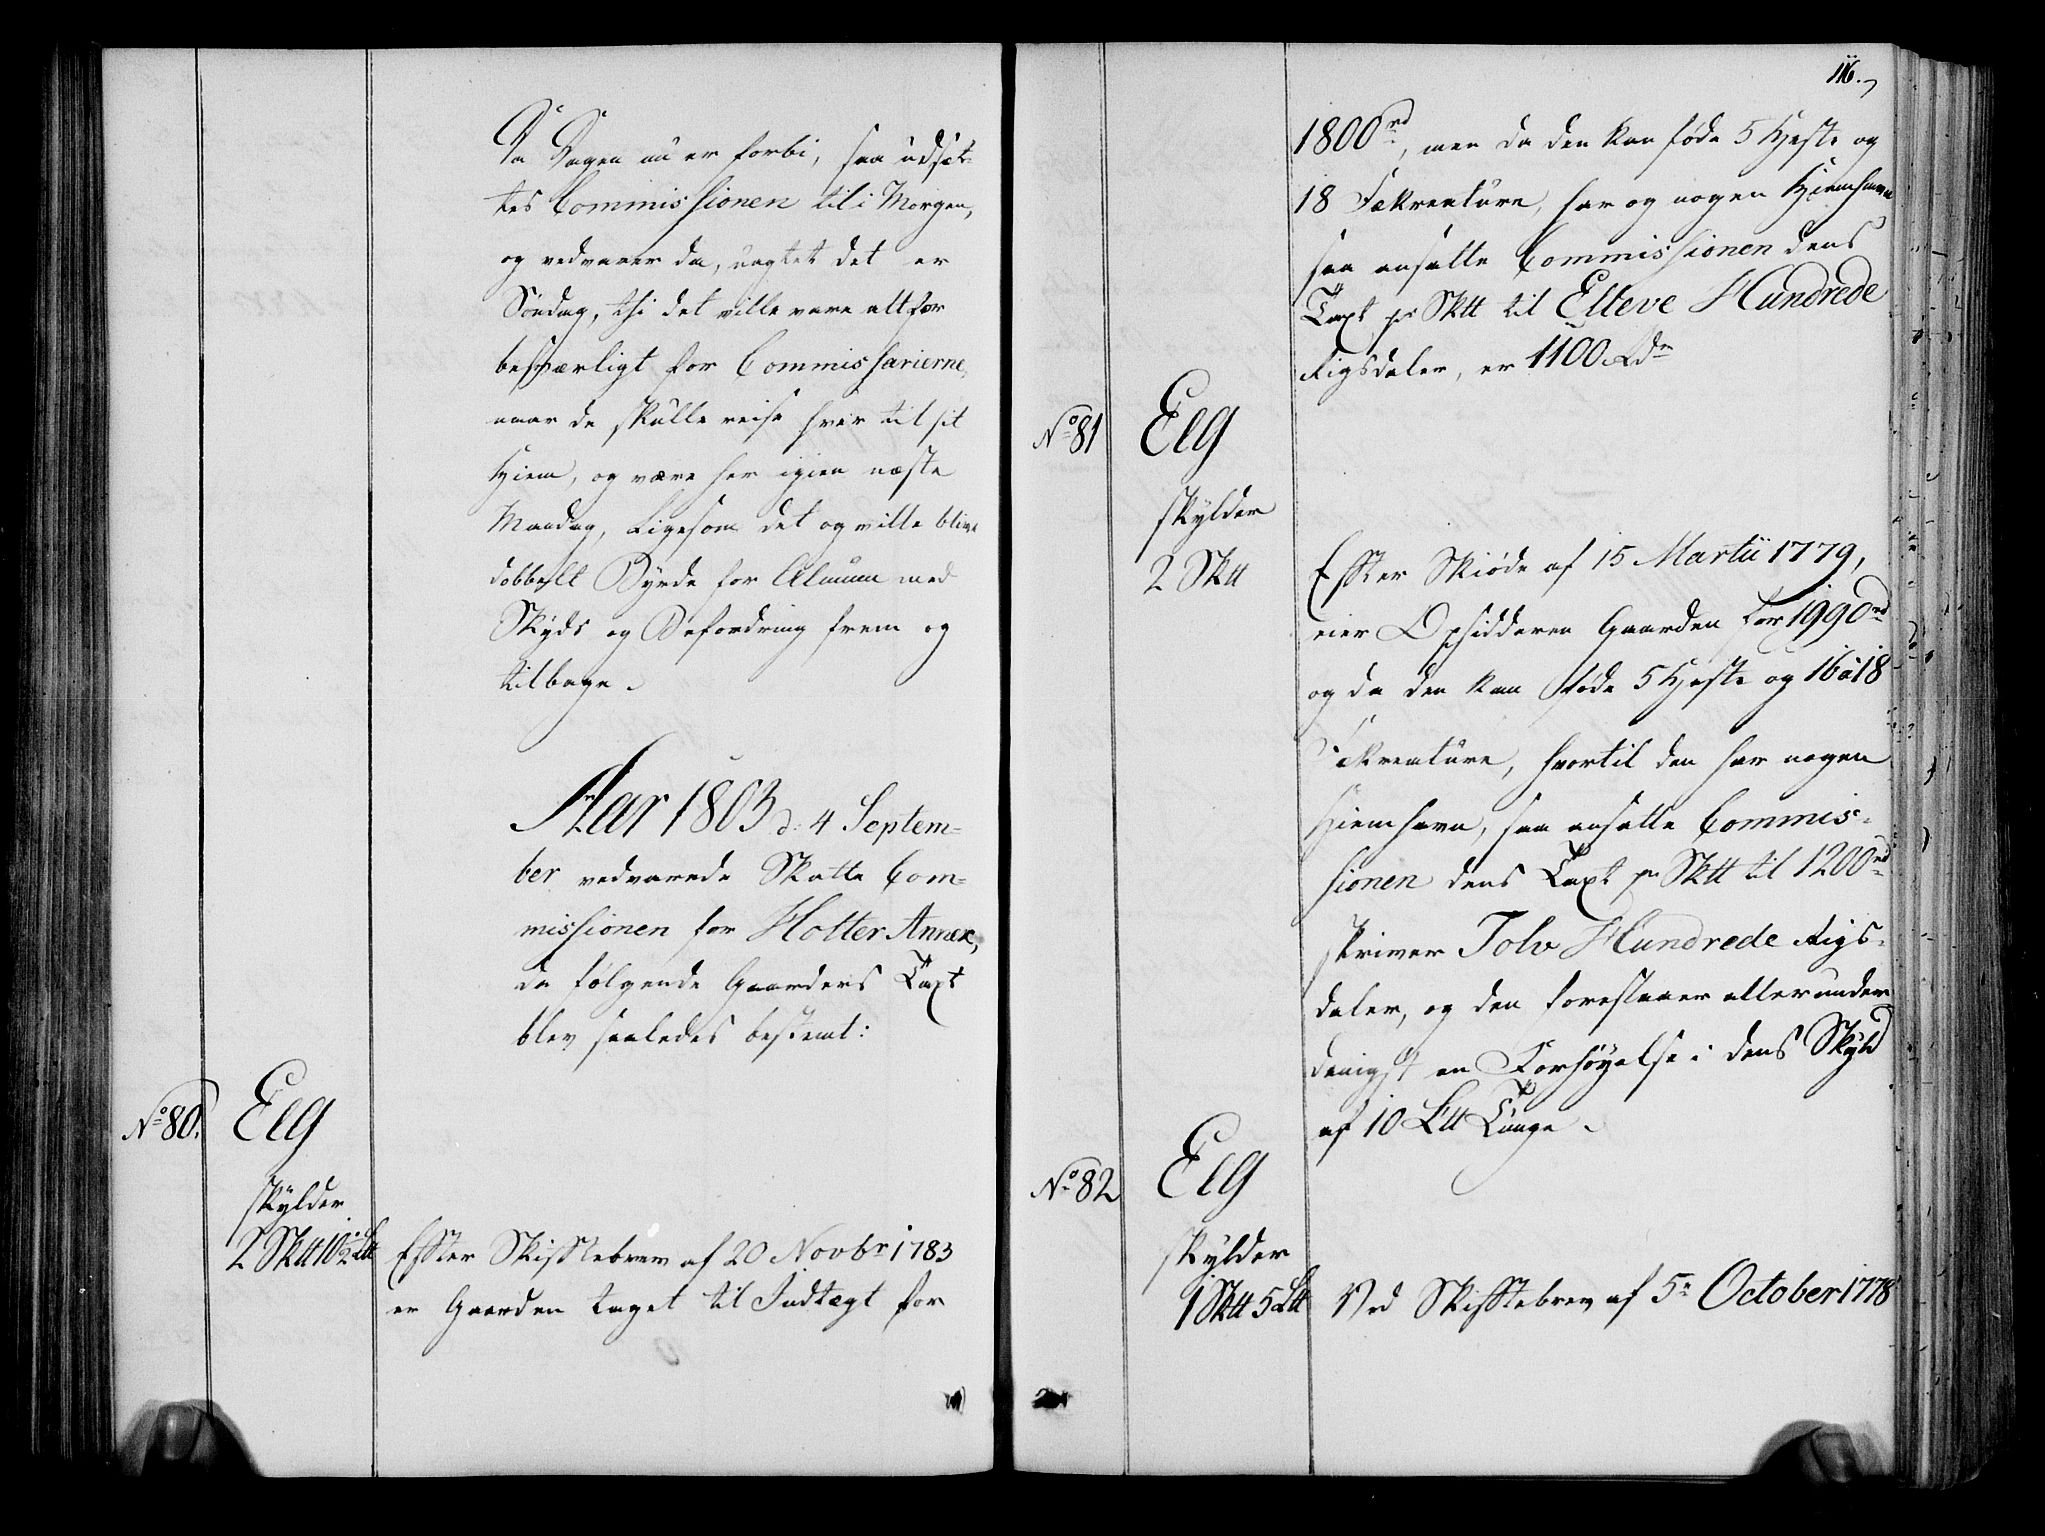 Da Dagen nu er forbi, saa udsæt-
tes Commissionen til i Morgen,
og vedvarer da, uagtet det er
Søndag, thi det ville være altfor
besværligt for Commissarierne,
naar de skulle reise hver til sit
Hiem, og være her igien næste
Mandag, Ligesom det og ville blive
dobbelt Byrde for Almuen med
Skyds og Befordring frem og
tilbage.
Aar 1803 d: 4 Septem-
ber vedvarede Skatte Com-
missionen for Holter Annex,
da følgende Gaarders Taxt
blev saaledes bestemt:
No 80. Elg
skylder
2 Sktt 10½ Ltt Effter Skifftebrev af 20 Novbr 1783
er Gaarden taget til Indtægt for
116.
1800rd, men da den kan føde 5 Heste og
18 Fækreature, har og nogen Hiemhavn
saa ansatte Commissionen dens
Taxt pr Sktt til Elleve Hundrede
Rigsdaler, er 1100 Rdr
No 81 Elg
skylder
2 Sktt Effter Skiøde af 15 Martii 1779,
eier Opsidderen Gaarden for 1990rd
og da den kan føde 5 Heste og 16 à 18
Fækreature, hvortil den har nogen
Hiemhavn, saa ansatte Commis-
sionen dens Taxt pr Sktt til 1200rd
skriver Tolv Hundrede Rigs-
daler, og den foreslaaer allerunder
danigst en Forhøyelse i dens Skyld
af 10 Ltt Tunge.
No 82 Elg
skylder
1 Sktt 5 Ltt Ved Skifftebrev af 5n October 1778